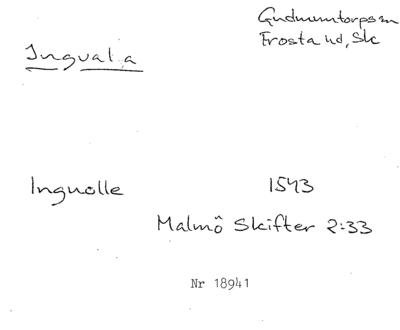 Gudmuntorps sn
Frosta hd, Sk
Ingvala
Inguolle 1543
Malmö Skifter 2:33
Nr 18941